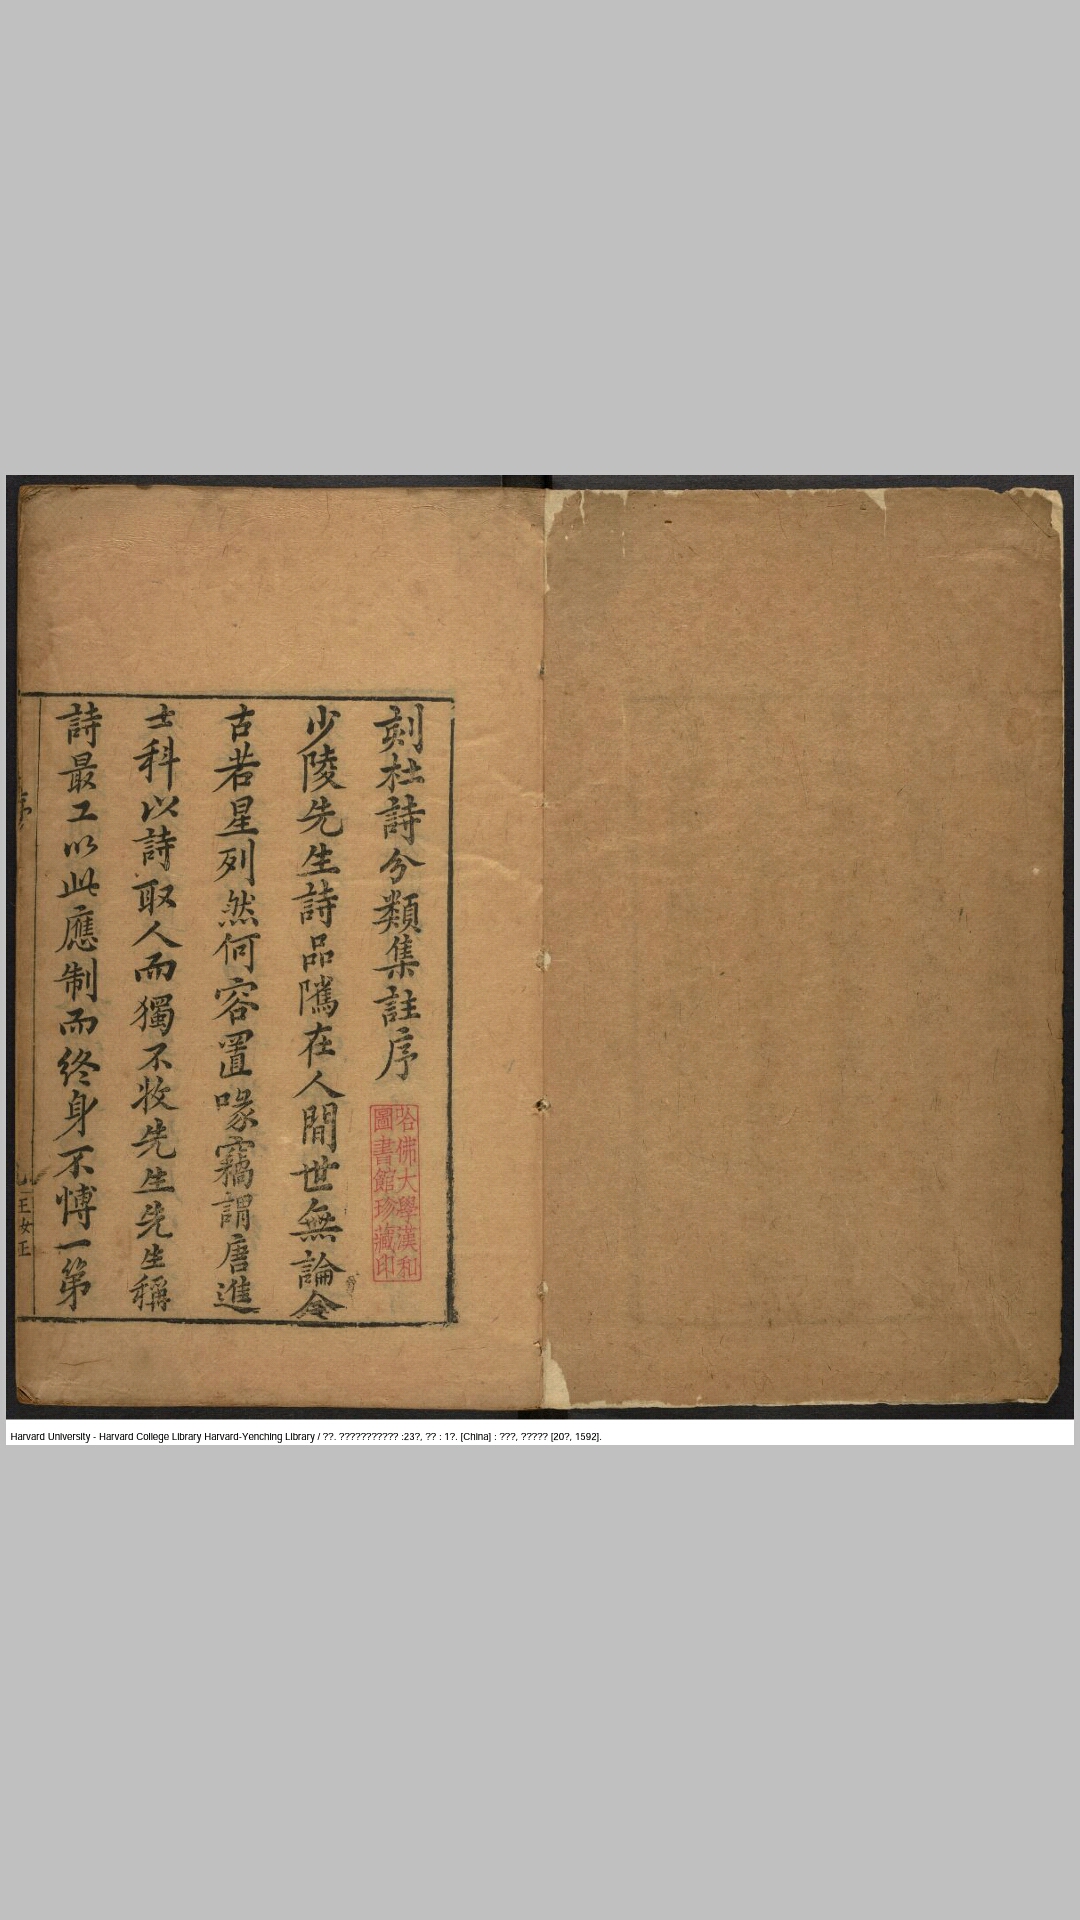 刻杜詩分類集註序
哈佛大學漢和
圖書館珍藏印
少陵先生詩品隲在人間世無論今
古若星列然何容置喙竊謂唐進
士科以詩取人而獨不收先生先生稱
詩最工以此應制而终身不愽一第
Harvard University - Harvard College Library Harvard-Yenching Library / ??. ??????????? :23?, ?? : 1?. [China] : ???, ????? [20?, 1592].